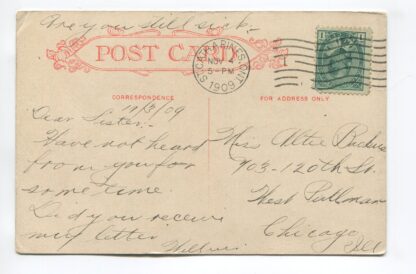 Are you still sick.
POST CARD
ST. CATHARINES, ONT.
NOV 4
5-PM
1909
CORRESPONDENCE
FOR ADDRESS ONLY
11/3/09
Dear Sister-
Have not heard
from you for
some time.
Did you receive
my letter
Miss Altie
703-120th St.
West Pullman
Chicago,
Ill